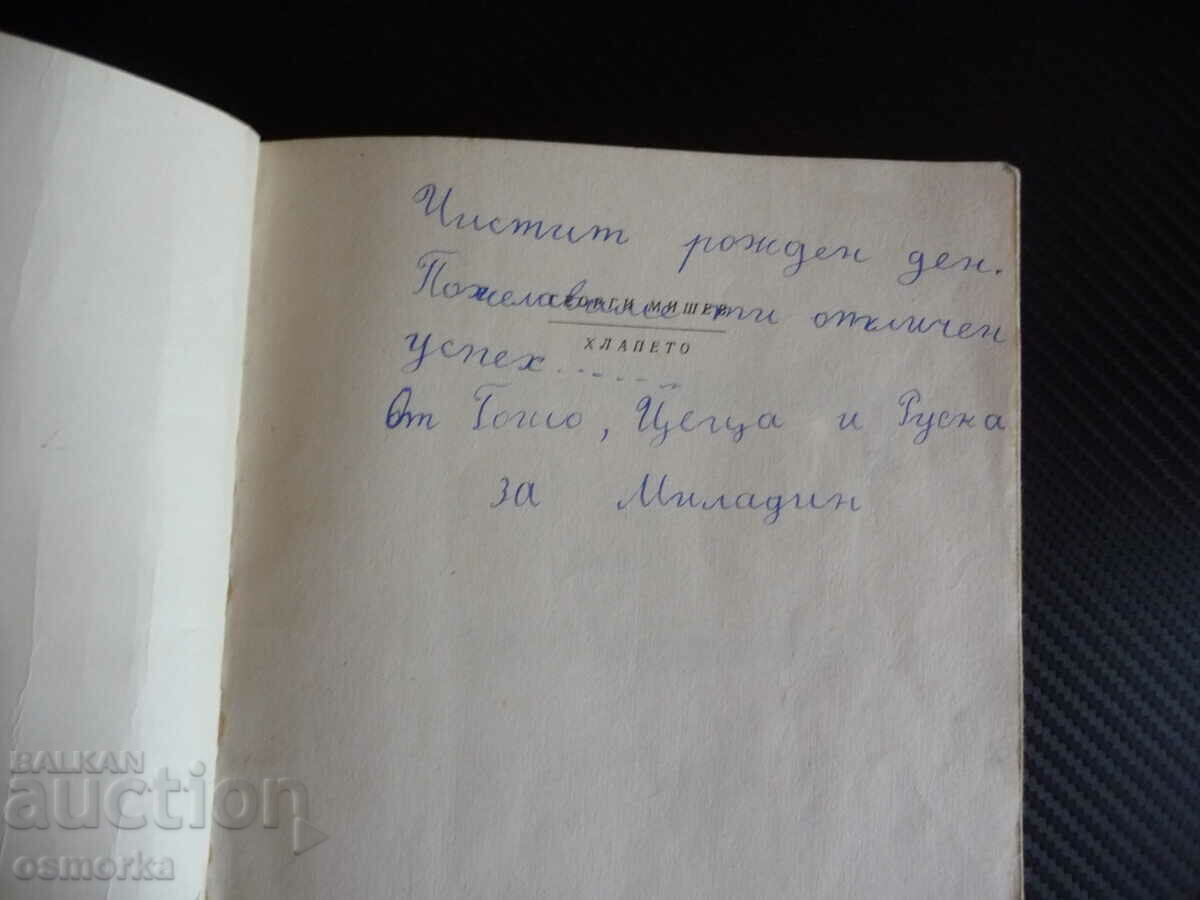 Чистит рожден ден.
Пожелаваме ти отличен
ГЕОРГИ МИШЕВ
ХЛАПЕТО
успех......
От Гошо, Цеца и Руска
за Миладин
BALKAN
auction
osmorka